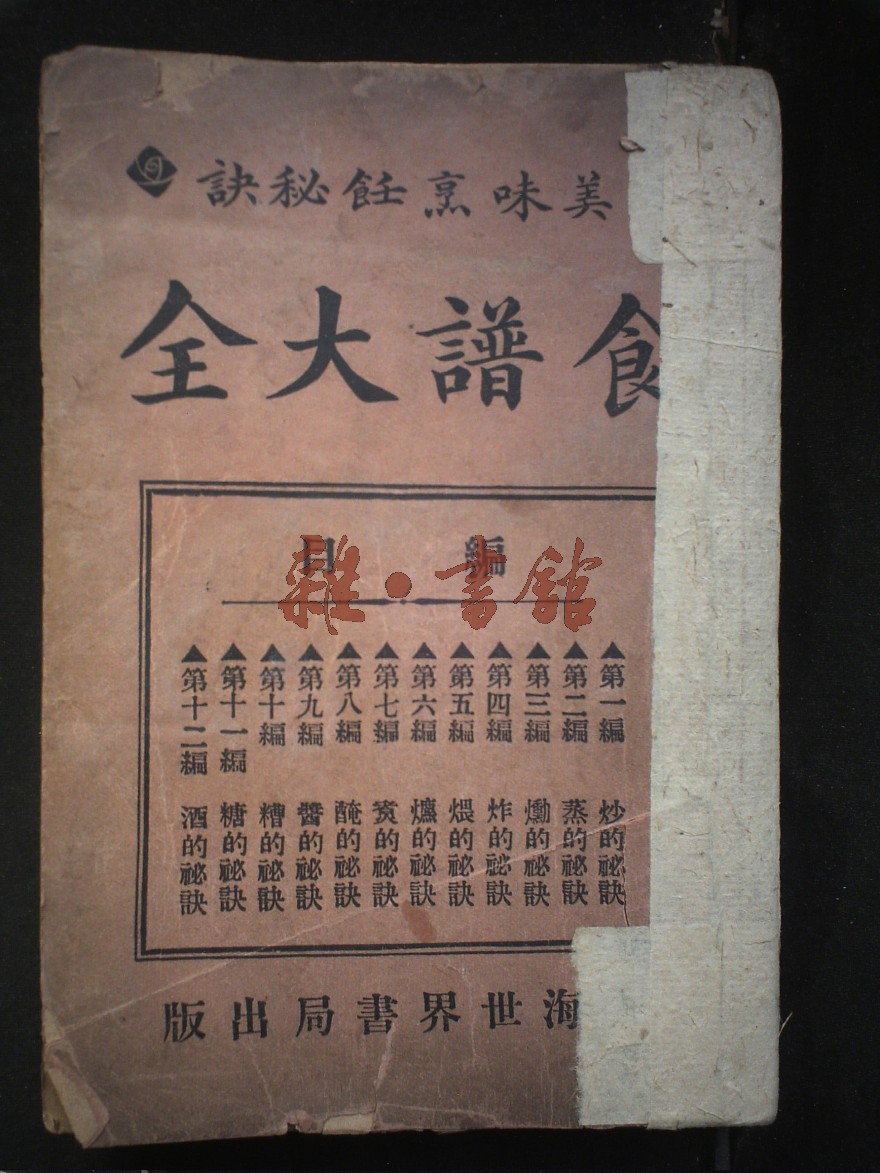 美味烹飪秘訣
食譜大全
編目
雜·書館
▲第一編 炒的祕訣
▲第二編 蒸的祕訣
▲第三編 的祕訣
▲第四編 炸的祕訣
▲第五編 煨的祕訣
▲第六編 的祕訣
▲第七編 的祕訣
▲第八編 醃的祕訣
▲第九編 醬的祕訣
▲第十編 糟的祕訣
▲第十一編 糖的祕訣
▲第十二編 酒的祕訣
海世界書局出版